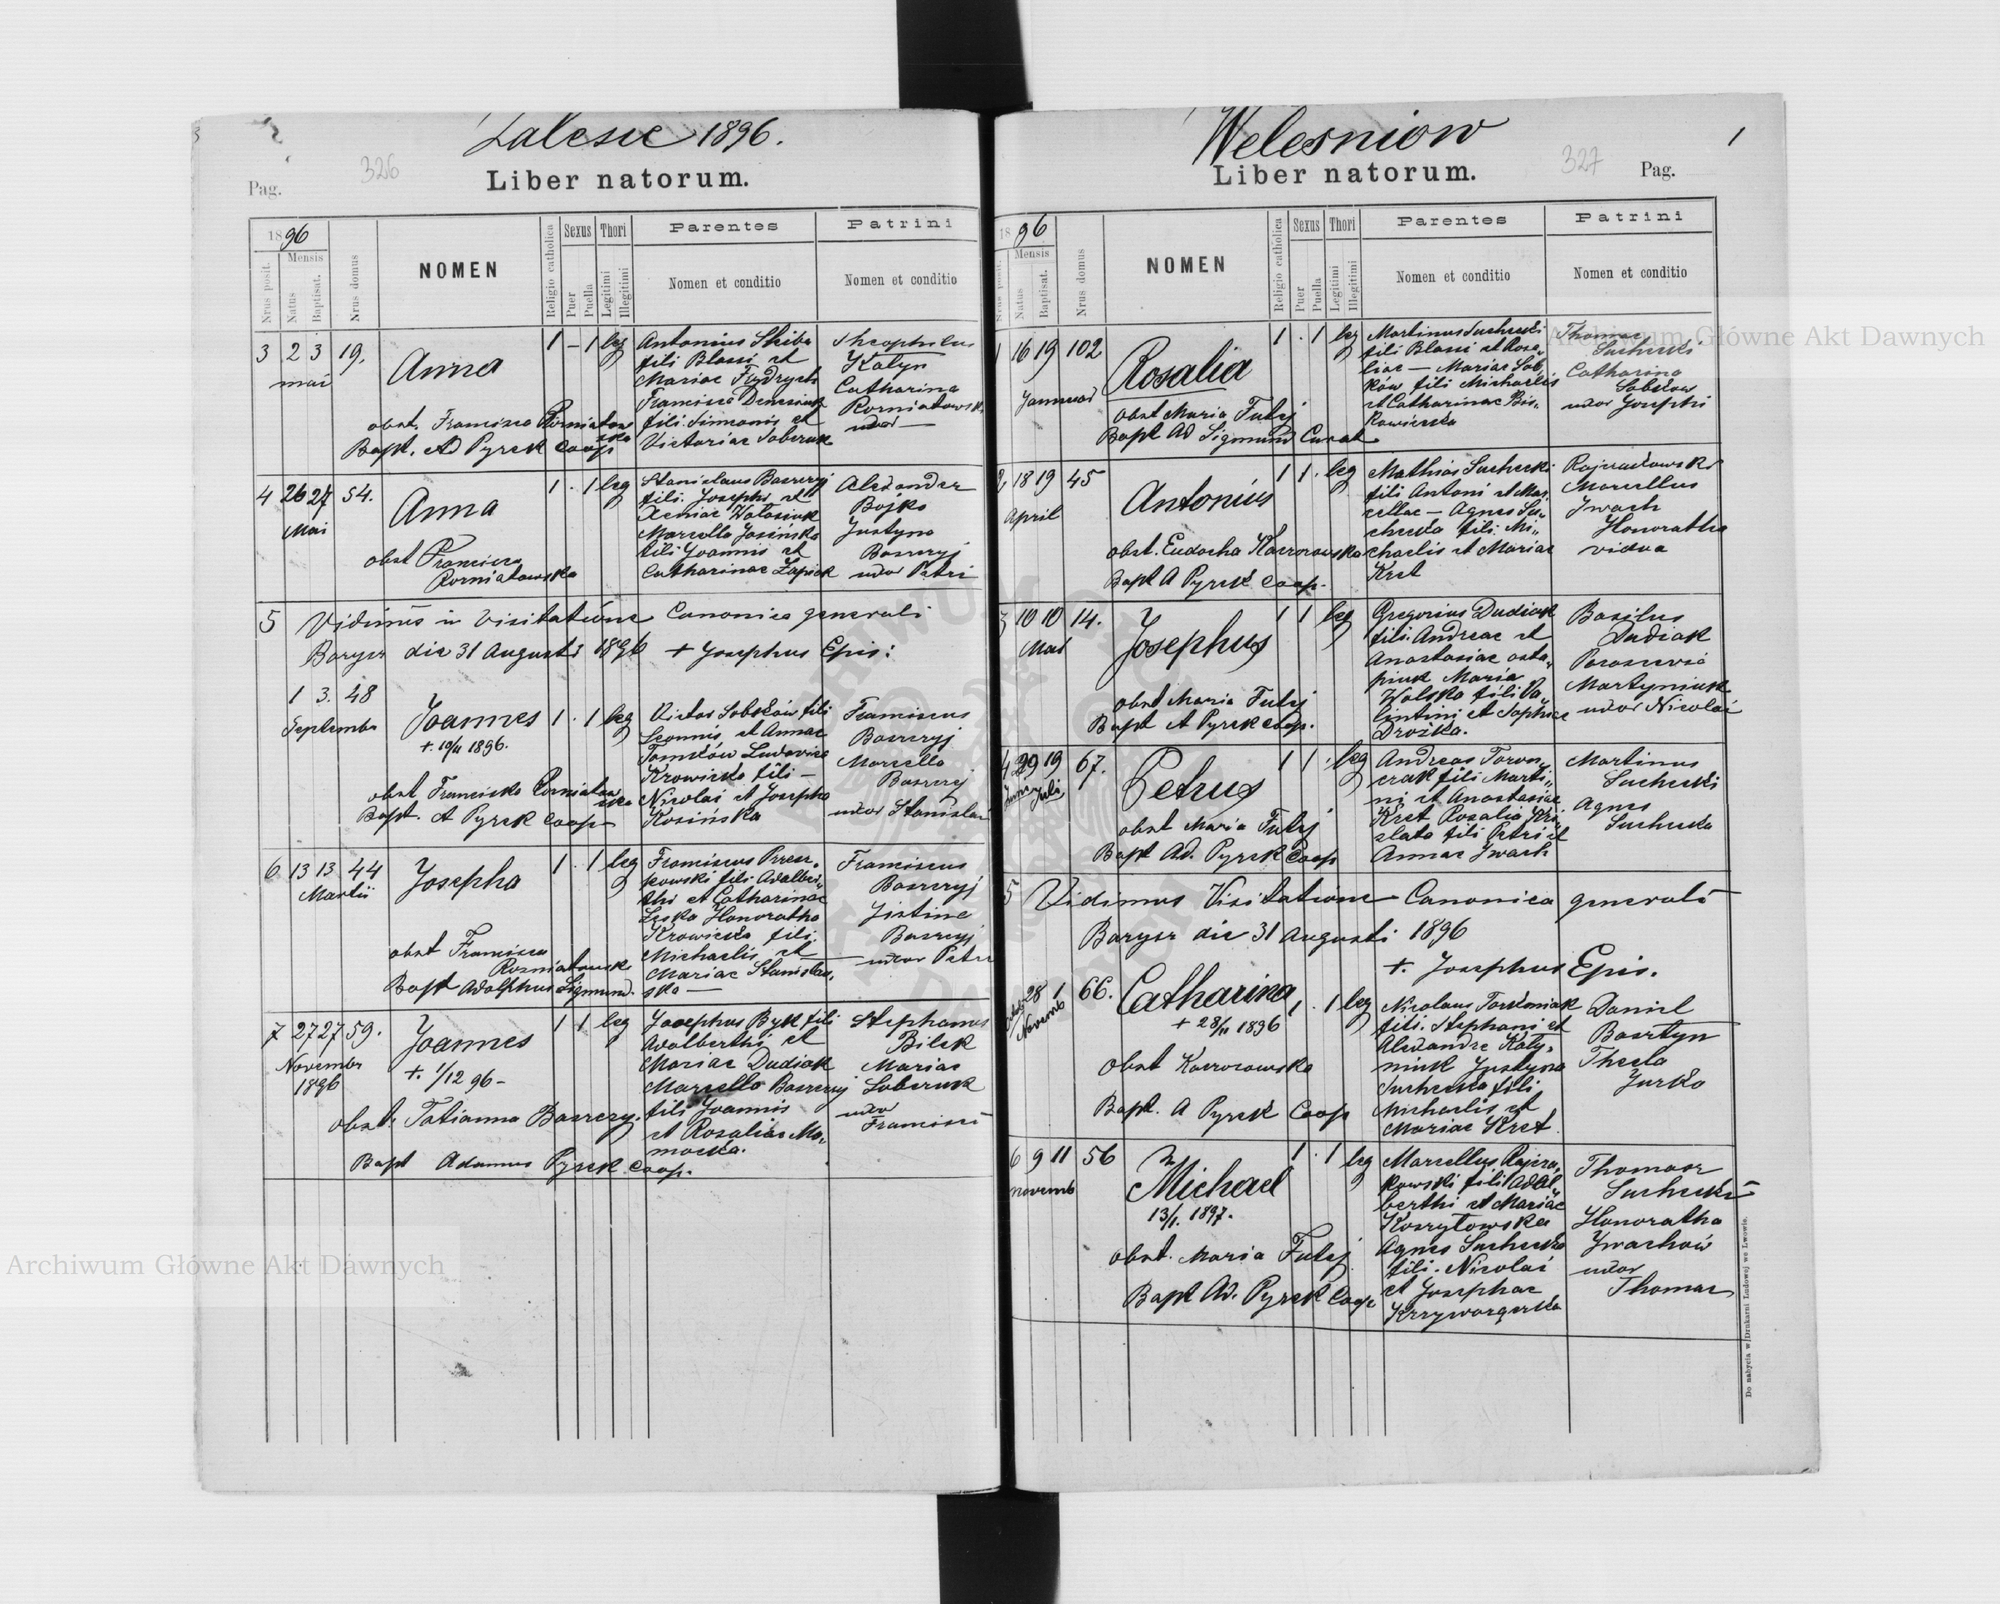 Zalesie 1896.
326
Pag.
Liber natorum.
1896
Nrus posit.
Mensis
Natus
Baptisat.
Nrus domus
NOMEN
Religio catholica
Sexus
Puer
Puella
Thori
Legitimi
Illegitimi
Parentes
Nomen et conditio
Patrini
Nomen et conditio
3 2 3 19.
mai
Anna
obst. Francisca
Bapt. Ad Pyrek Coop
1 – 1 leg
Antonius Skiba
fili Blasii et
Mariae Frydrych
fili. Simeonis et
Victoriae Soberuk
Theophilus
Katyn
Catharina
uxor
4 26 27 54.
Mai
Anna
obst Francisca
Rozniatowska
1 . 1 leg
Stanislaus Bazeryj
fili. Josephi et
Xeniae
Marcella Josińska
fili Joannis et
Catharinae Łapiek
Alexander
Bojko
Justyna
uxor Petri
5 Vidimus in visitatione Canonica generali
Barysz die 31 Augusti 1896 + Josephus Epis:
1 3. 48
Septembr
Joannes
+ 10/11 1896.
Bapt. A Pyrek Coop
1 . 1 leg
Victor Sobków fili
Leonnis et Annae
Tomków Ludovica
Krowicka fili –
Nicolai et Josepha
Kosińska
Franciscus
Marcella
uxor Stanislai
6 13 13 44
Martii
Josepha
obst Francisca
Rozniatowsk
Bapt Adolphus Sigmund.
1 . 1 leg
Franciscus
kowski fili Adalber„
thi et Catharinae
Leska Honoratha
Krowicka fili.
Michaelis et
Mariae Stanisław„
ska –
Franciscus
Justine
uxor Petri
7 27 27 59.
Novembr
1896
Joannes
+. 1/12 96 –
Bapt Adamus Pyrek Coop.
1 1 leg
Josephus Byk fili
Adalberthi et
Mariae Dudiak
Marcella
fili Joannis
et Rosaliae Mo„
Stephanus
Bilek
Mariae
Soberuk
uxor
Francisci
Welesniow
1
327
Liber natorum.
Pag.
1896
Nrus posit.
Mensis
Natus
Baptisat.
Nrus domus
NOMEN
Religio catholica
Sexus
Puer
Puella
Thori
Legitimi
Illegitimi
Parentes
Nomen et conditio
Patrini
Nomen et conditio
1 16 19 102
Januar
Rosalia
obst Maria Futyj
Bapt Ad Sigmund Curat
1 . 1 leg
Martinus Suchecki
fili Blasii et Rosa„
liae – Mariae Sob„
ków fili Michaelis
et Catharinae Bis„
Thomas
Suchecki
Catharina
Sobków
uxor Josephi
2 18 19 45
April
Antonius
obst. Eudocha
Bapt A Pyrek Coop.
1 1 . leg
Mathias Suchecki
fili Antoni et Mar„
cellae – Agnes Su„
checka fili. Mi„
chaelis et Mariae
Kret
Marcellus
Iwach
Honoratha
vidua
3 10 10 14.
Mai
Josephus
obst Maria Futyj
Bapt A Pyrek Coop.
1 1 leg
Gregorius Dudiak
fili. Andreae et
Anastasiae osta„
piuk Maria
Wolska fili Va„
lentini et Sophiae
Drożka.
Basilus
Dudiak
Martyniuk
uxor Nicolai
4 29 19 67.
Juni Juli
Petrus
obst Maria Futyj
Bapt Ad. Pyrek Coop
1 1 . leg
Andreas
fili Marti„
ni et Anastasiae
Kret Rosalia
fili Petri et
Annae Iwach
Martinus
Suchecki
Agnes
Suchecka
5 Vidimus Visitatione Canonica generali
Barysz die 31 Augusti 1896
+. Josephus Epis.
28 1 66.
Novemb
Catharina
+ 28/11 1896
Obst
Bapt. A Pyrek Coop
1 . 1 leg
Nicolaus
fili. Stephani et
Alexandra
Justyna
Suchecka fili
Michaelis et
Mariae Kret
Daniel
Thecla
Jurko
6 9 11 56
Novemb
Michael
13/1. 1897.
obst. Maria Futyj
Bapt Ad. Pyrek Coop
1 . 1 leg
Marcellus
kowski fili Adal„
berthi et Mariae
Agnes Suchecka
fili. Nicolai
et Josephae
Thomas
Suchecki
Honoratha
Iwachów
uxor
Thomae
Do nabycia w Drukarni Ludowej we Lwowie.
Archiwum Główne Akt Dawnych
Archiwum Główne Akt Dawnych